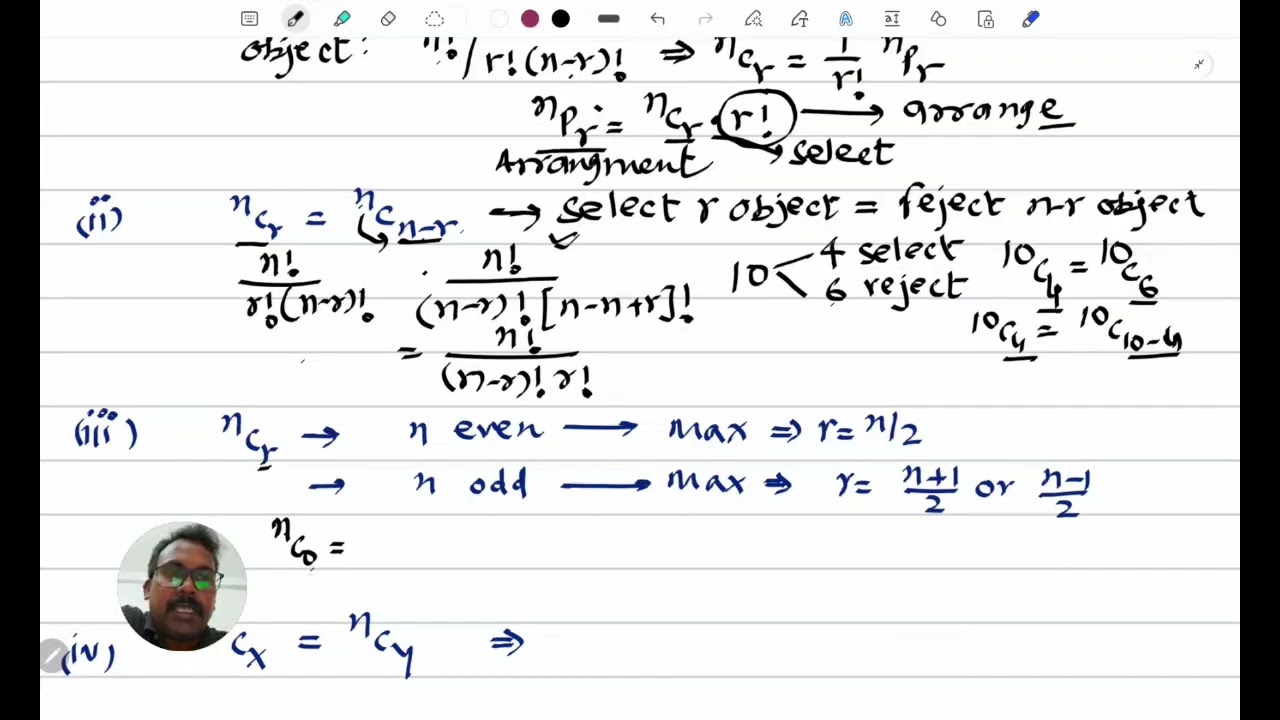 object: n!/r!(n-r)! ⇒ ⁿCᵣ = 1/r! ⁿPᵣ
ⁿPᵣ = ⁿCᵣ · r! → arrange
Arrangment → select
(ii) ⁿCᵣ = ⁿCₙ₋ᵣ → select r object = reject n-r object
n!/r!(n-r)! n!/(n-r)![n-n+r]! 10 < 4 select 6 reject ¹⁰C₄ = ¹⁰C₆
= n!/(n-r)! r! ¹⁰C₄ = ¹⁰C₁₀₋₄
(iii) ⁿCᵣ → n even → max ⇒ r = n/2
→ n odd → max ⇒ r = n+1/2 or n-1/2
ⁿC₀ =
(iv) Cx = ⁿCy ⇒